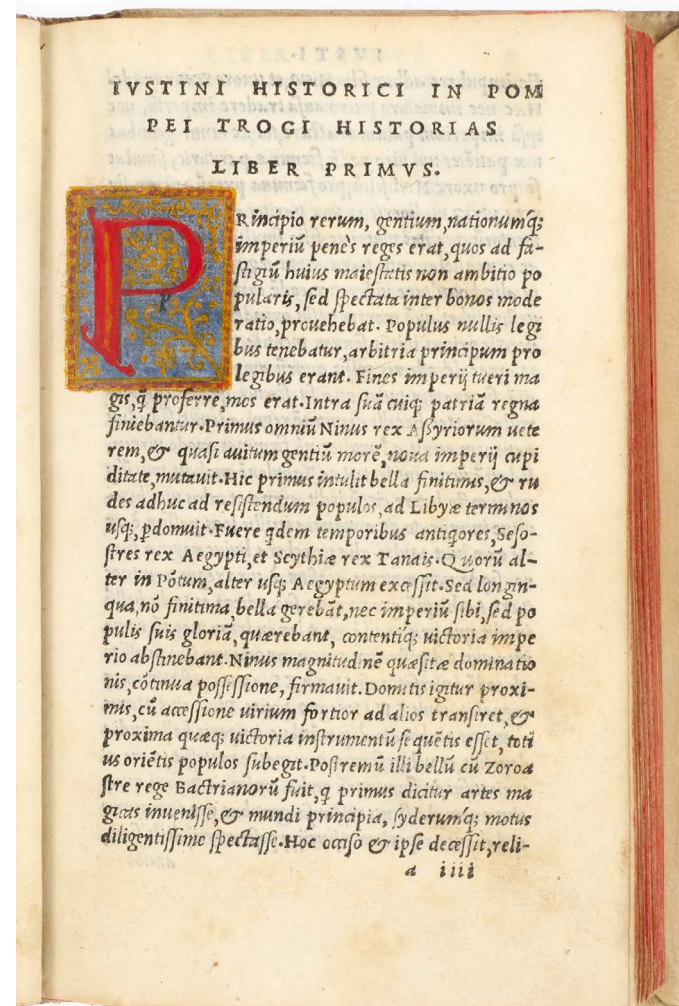 IVSTINI HISTORICI IN POM
PEI TROGI HISTORIAS
LIBER PRIMVS.
PRincipio rerum, gentium, nationumq;
imperiũ penès reges erat, quos ad fa-
stigiũ huius maiestatis non ambitio po
pularis, sed spectata inter bonos mode
ratio, prouehebat. Populus nullis legi
bus tenebatur, arbitria principum pro
legibus erant. Fines imperij tueri ma
gis, q̃ proferre, mos erat. Intra suã cuiq; patriã regna
finiebantur. Primus omniũ Ninus rex Assyriorum uete
rem, & quasi auitum gentiũ morẽ, noua imperij cupi
ditate, mutauit. Hic primus intulit bella finitimis, & ru
des adhuc ad resistendum populos, ad Libyæ terminos
usq; ꝑdomuit. Fuere qdem temporibus antiqores, Seso-
stres rex Aegypti, et Scythiæ rex Tanais. Quorũ al-
ter in Põtum, alter usq; Aegyptum excessit. Sed longin-
qua, nõ finitima, bella gerebãt, nec imperiũ sibi, sed po
pulis suis gloriã, quærebant, contentiq; uictoria impe
rio abstinebant. Ninus magnitudinẽ quæsitæ dominatio
nis, cõtinua possessione, firmauit. Domitis igitur proxi-
mis, cũ accessione uirium fortior ad alios transiret, &
proxima quæq; uictoria instrumentũ sequẽtis esset, toti
us oriẽtis populos subegit. Postremũ illi bellũ cũ Zoroa
stre rege Bactrianorũ fuit, q primus dicitur artes ma
gicas inuenisse, & mundi principia, syderumq; motus
diligentissime spectasse. Hoc occiso & ipse decessit, reli-
a iiii